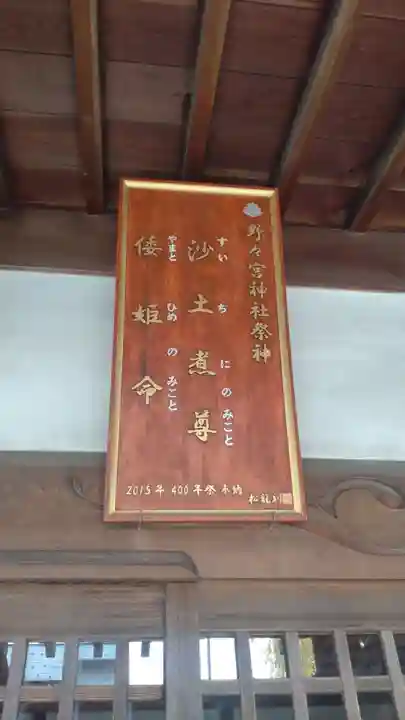 野々宮神社祭神
沙土煮尊
すいちにのみこと
倭姫命
やまとひめのみこと
2015年 400年祭 奉納
松龍刻